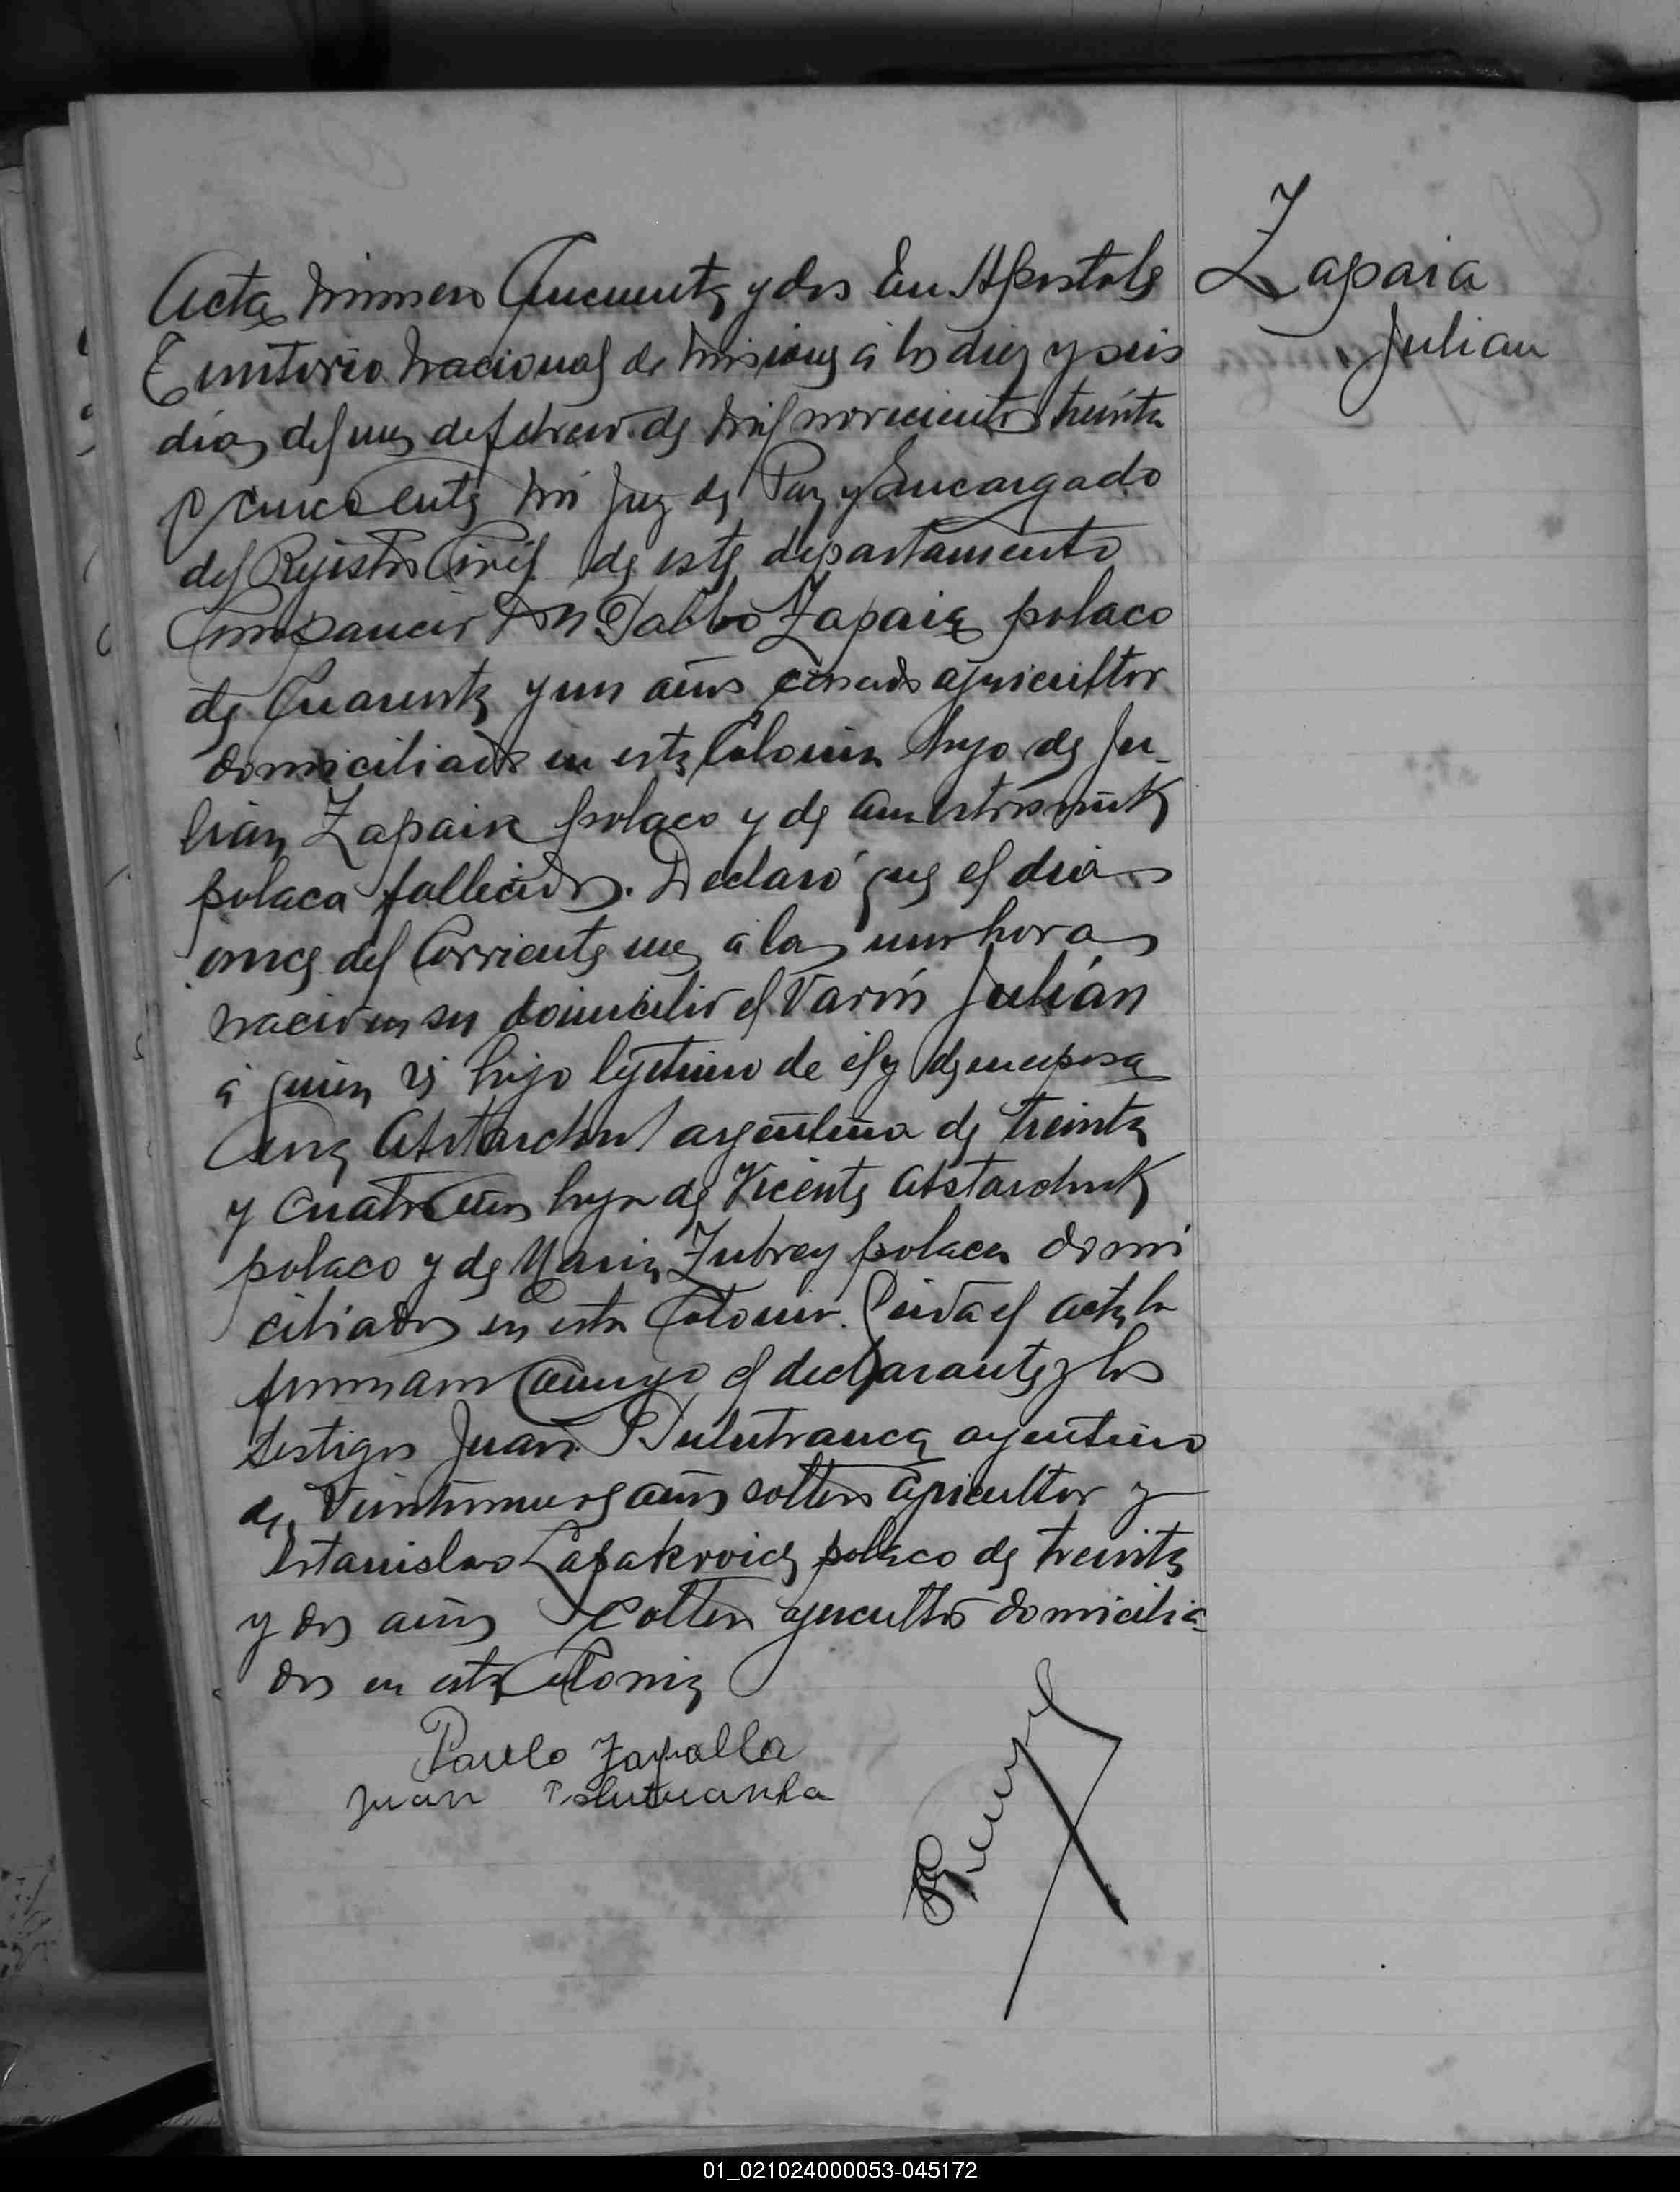 Zapaia
Julian
Acta número Cincuenta y dos En Apostoles
Territorio Nacional de Misiones á los diez y seis
días del mes de febrero de mil novecientos treinta
y cinco ante mi Juez de Paz y Encargado
del Registro Civil de este departamento
Compareció Don Pablo Zapaia polaco
de Cuarenta y un años casado agricultor
domiciliado en esta Colonia hijo de Ju-
lián Zapaia polaco y de
polaca fallecidos. Declaró que el día
once del Corriente mes a las una horas
nació en su domicilio el Varón Julián
á quien es hijo lejitimo de él y de su esposa
Ana argentina de treinta
y cuatro años hija de Vicente Abstarchuk
polaco y de Maria Zubrey polaca domi
ciliados en esta Colonia. Leida el acta la
firmaron Conmigo el declarante y los
testigos Juan argentino
de Veintinueve años soltero agricultor y
Estanislao polaco de treinta
y dos años soltero agricultor domicilia-
dos en esta Colonia
Paulo Zapalla
Juan
01_021024000053-045172